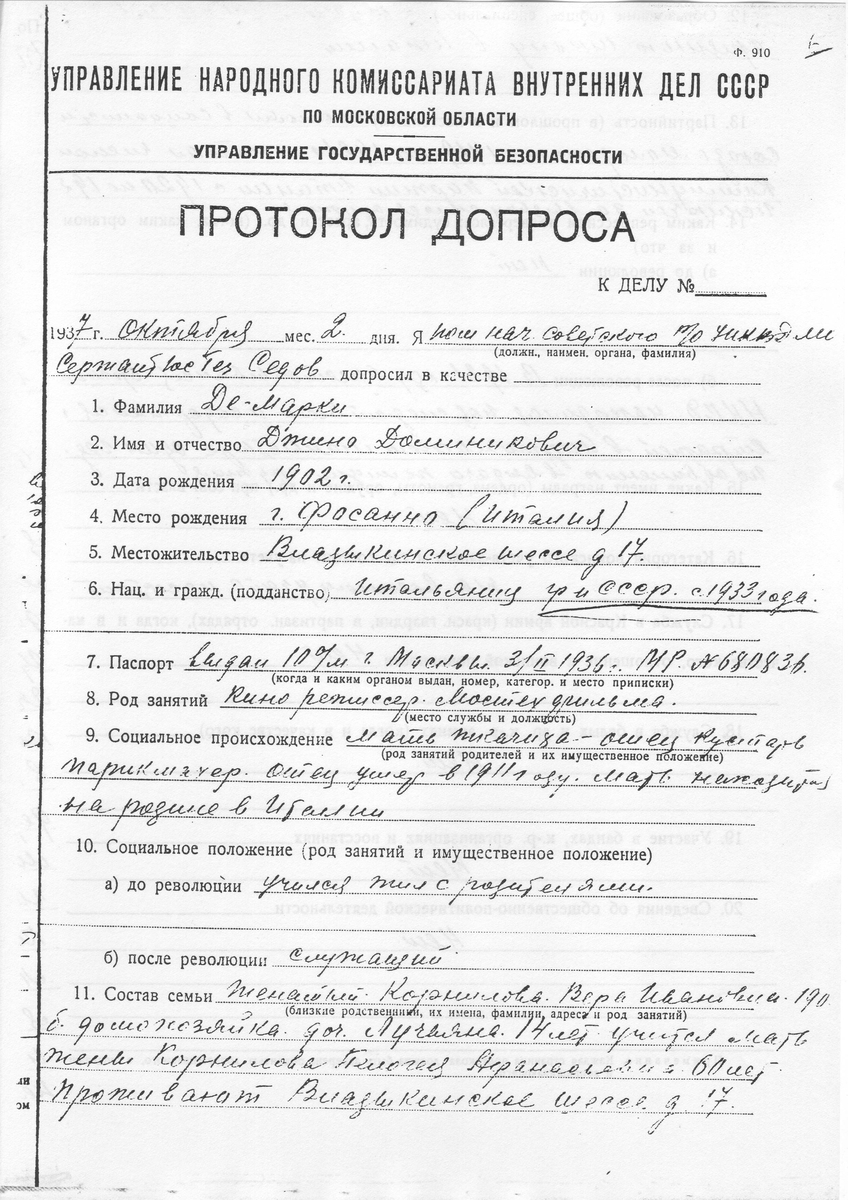 Ф. 910
УПРАВЛЕНИЕ НАРОДНОГО КОМИССАРИАТА ВНУТРЕННИХ ДЕЛ СССР
ПО МОСКОВСКОЙ ОБЛАСТИ
УПРАВЛЕНИЕ ГОСУДАРСТВЕННОЙ БЕЗОПАСНОСТИ
ПРОТОКОЛ ДОПРОСА
К ДЕЛУ №
1937 г. октября мес. 2 дня. Я пом нач советского
(должн., наимен. органа, фамилия)
Сержант Седов допросил в качестве
1. Фамилия Де-Марки
2. Имя и отчество Джино Доминикович
3. Дата рождения 1902 г.
4. Место рождения г. Фосанно (Италия)
5. Местожительство Владыкинское шоссе д 17.
6. Нац. и гражд. (подданство) Итальянец гр СССР. с 1933 года
7. Паспорт выдан 10 г. Москвы. 1936 г. № 680836.
(когда и каким органом выдан, номер, категор. и место приписки)
8. Род занятий Кино режиссер. Мостехфильма.
(место службы и должность)
9. Социальное происхождение мать ткачиха - отец кустарь
(род занятий родителей и их имущественное положение)
парикмахер. отец умер в 1911 году. мать находится
на родине в Италии
10. Социальное положение (род занятий и имущественное положение)
а) до революции учился жил с родителями.
б) после революции служащий
11. Состав семьи Женатый. Корнилова. Вера Ивановна. 190
(близкие родственники, их имена, фамилии, адреса и род занятий)
6. домохозяйка. доч. Лучьяна. 14 лет учится мать
жены Корнилова Афанасьевна 60 лет
Проживают Владыкинское шоссе д 17.
ли
ом